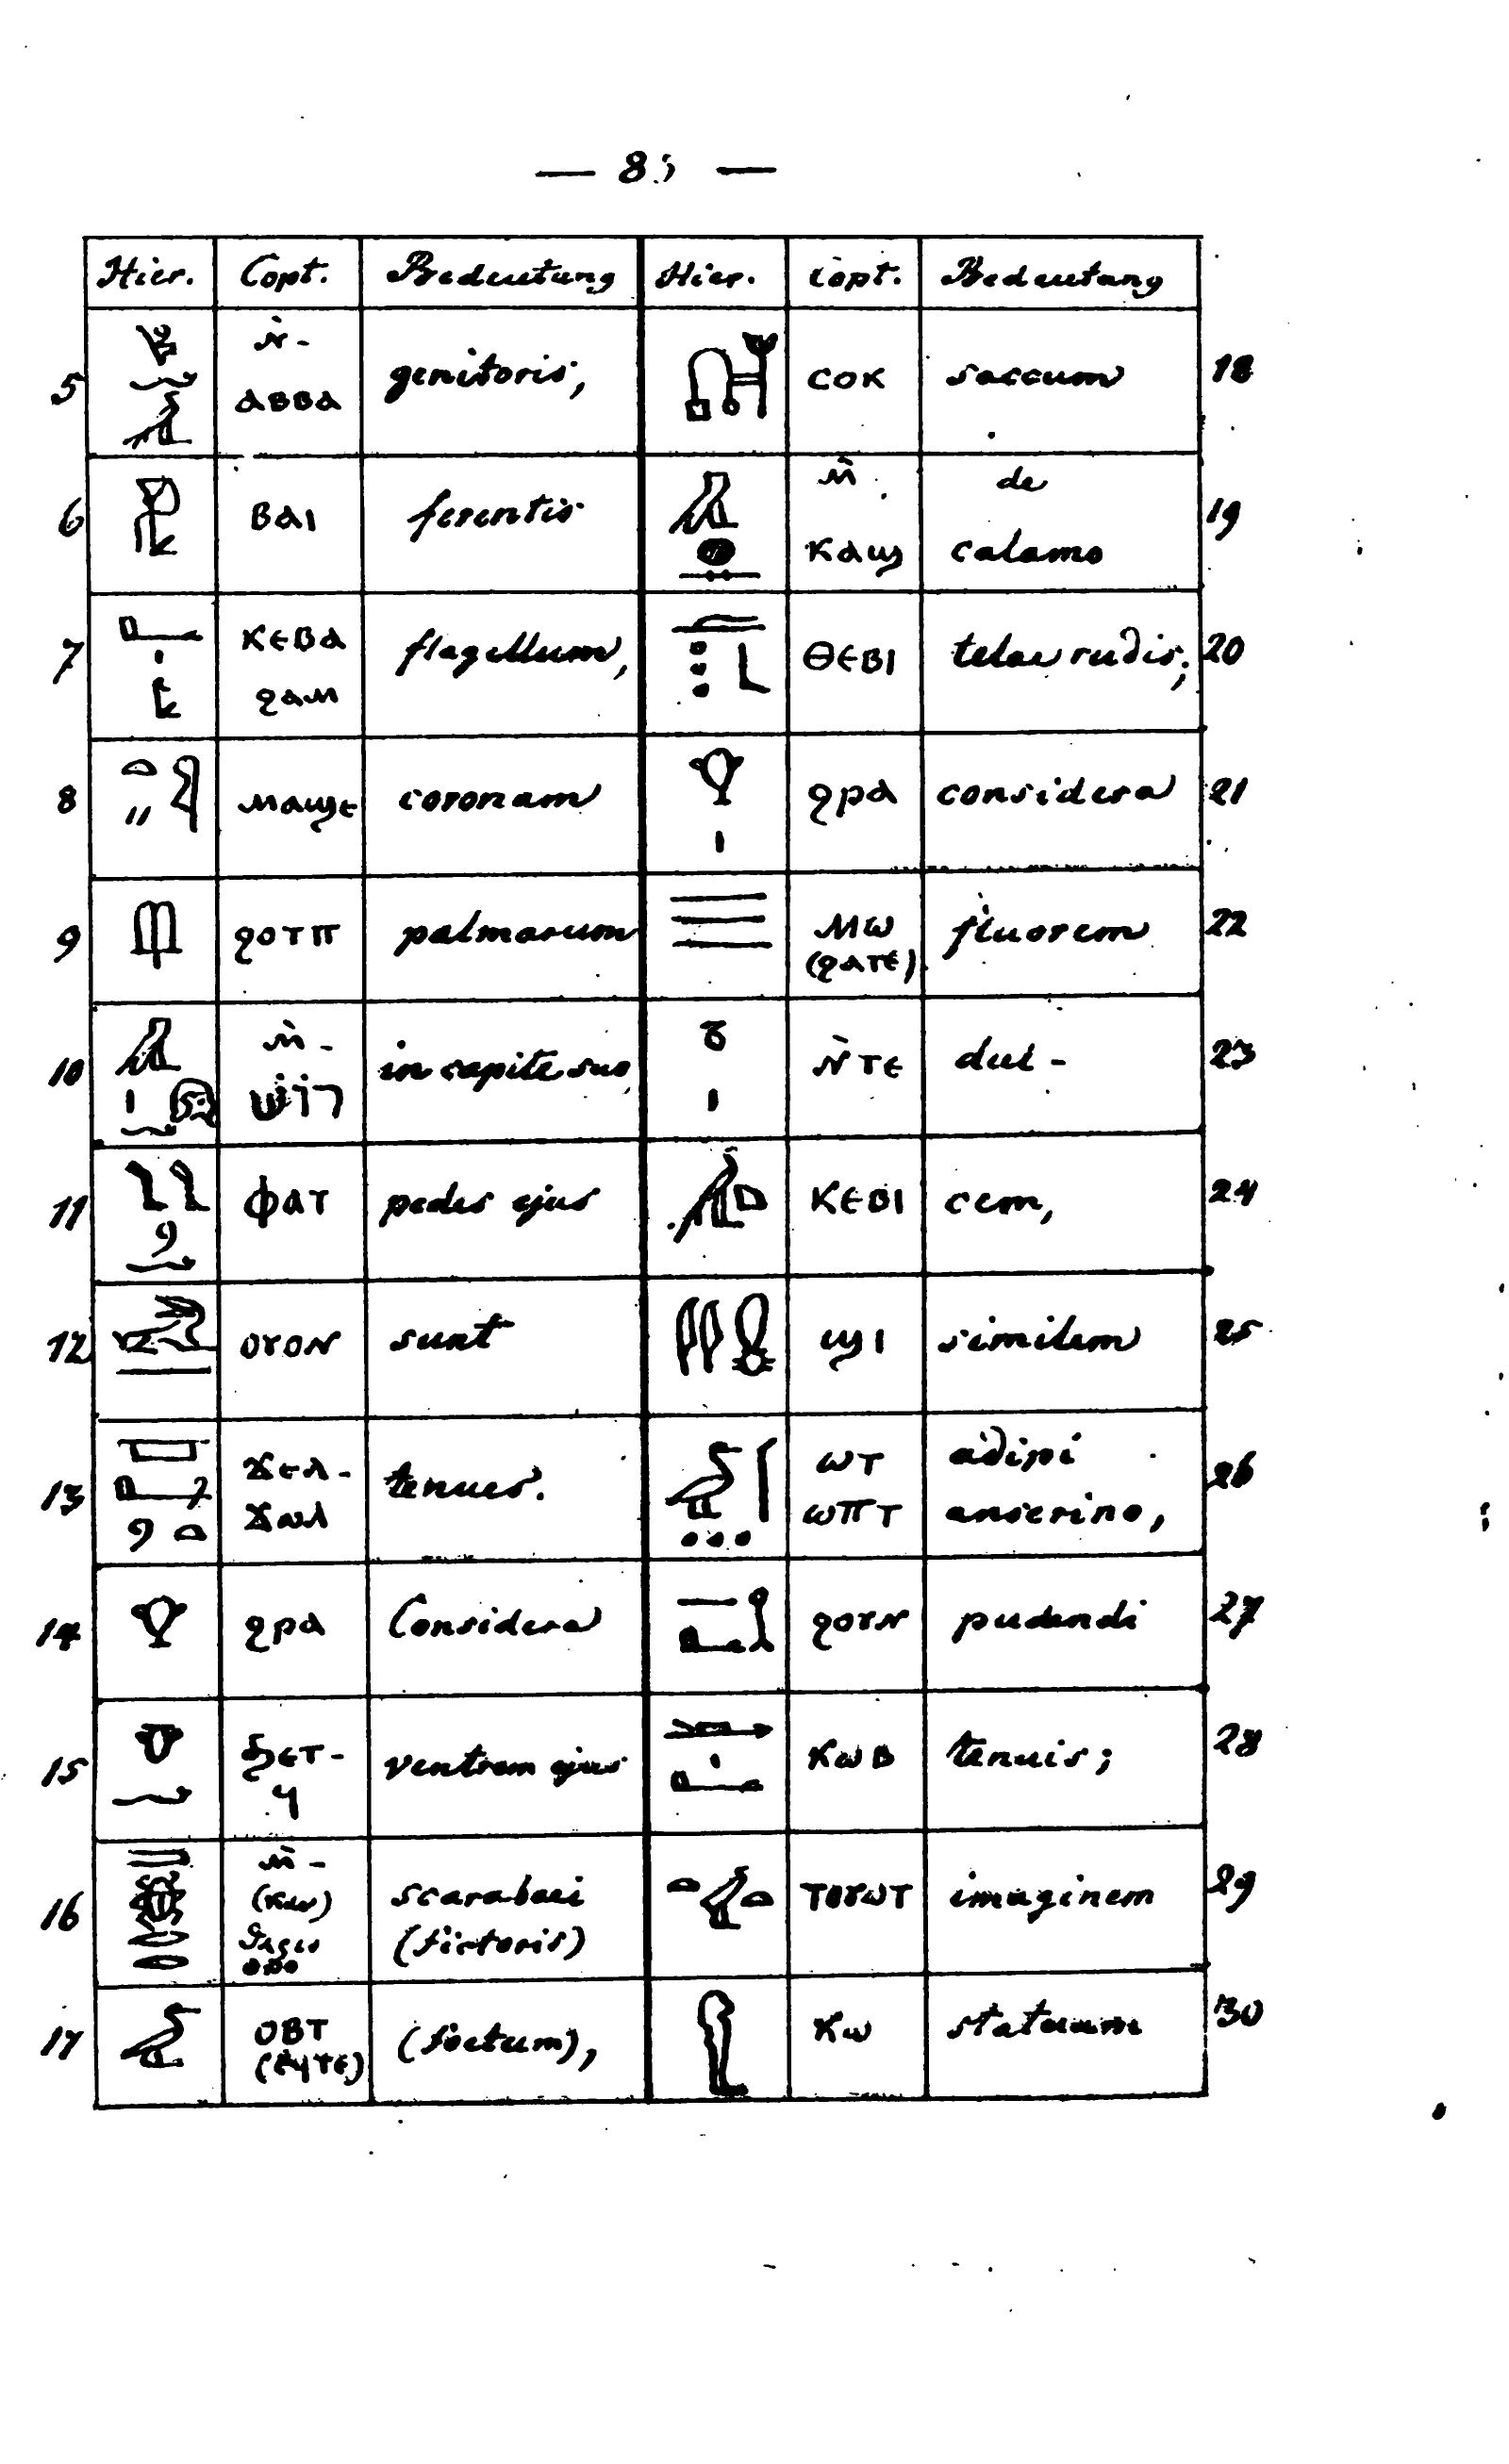 — 85 —
Hier. Copt. Bedeutung Hier. Copt. Bedeutung
5 ⲛ̀- ⲁⲃⲃⲁ genitoris, ⲥⲟⲕ saccum 18
6 ⲃⲁⲓ ferentis ⲙ̀ ⲕⲁϣ de calamo 19
7 ⲕⲉⲃⲁ ϩⲁⲙ flagellum, ⲑⲉⲃⲓ telae rudis; 20
8 ⲙⲁϣⲉ coronam ϩⲣⲁ considera 21
9 ϩⲟⲧⲡ palmarum ⲙⲱ (ϩⲁⲧⲉ) fluorem 22
10 ⲙ̀- רֹוֹשׁ in capite suo ⲛ̀ⲧⲉ dul- 23
11 ⲫⲁⲧ pedes ejus ⲕⲉⲃⲓ cem, 24
12 ⲟⲩⲟⲛ sunt ϣⲓ similem 25
13 ϫⲉⲗ- ϫⲱⲗ tenues. ⲱⲧ ⲱⲡⲧ adipi anserino, 26
14 ϩⲣⲁ Considera ϩⲟⲩⲛ pudendi 27
15 ϧⲉⲧ- ϥ ventrem ejus ⲕⲱⲃ tenuis; 28
16 ⲙ̀- scarabaei (fictoris) ⲧⲟⲩⲱⲧ imaginem 29
17 ⲟⲃⲧ (ⲉϥⲧⲉ) (foetum), ⲕⲱ statuam 30